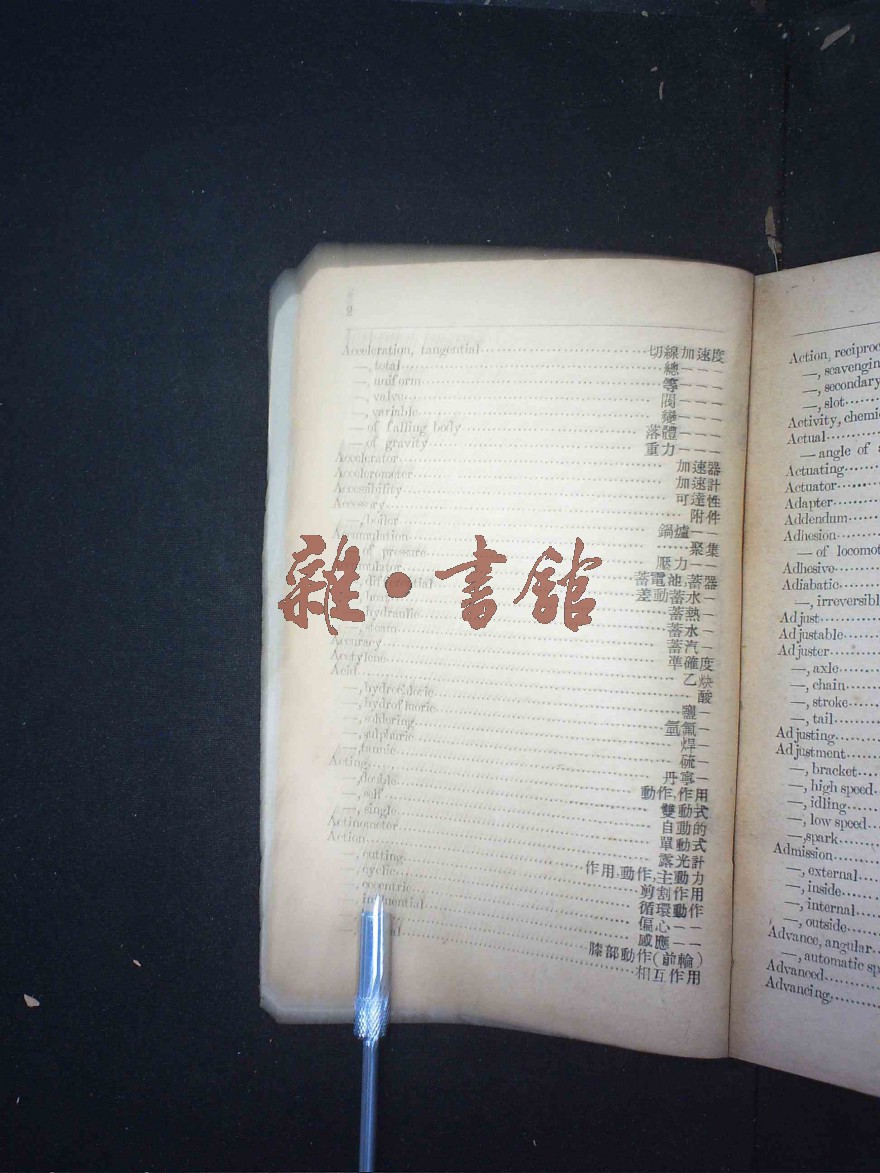 2
Acceleration, tangential 切線加速度
—, total 總———
—, uniform 等———
—, valve 閥———
—, variable 變———
— of falling body 落體———
— of gravity 重力———
Accelerator 加速器
Accelerometer 加速計
Accessibility 可達性
Accessory 附件
—, boiler 鍋爐——
聚集
of pressure 壓力——
蓄電池,蓄器
差動蓄水—
蓄熱—
hydraulic 蓄水—
—, steam 蓄汽—
Accuracy 準確度
Acetylene 乙炔
Acid 酸
—, hydrochloric 鹽—
—, hydrofluoric 氫氟—
—, soldering 焊—
—, sulphuric 硫—
—, tannic 丹寧—
Acting 動作,作用
—, double 雙動式
—, self 自動的
—, single 單動式
Actinometer 露光計
Action 作用,動作,主動力
—, cutting 剪割作用
—, cyclic 循環動作
—, eccentric 偏心——
感應——
膝部動作(前輪)
相互作用
雜·書館
Action, reciproc
—, scavengin
—, secondary
—, slot
Activity, chemi
Actual
— angle of
Actuating
Actuator
Adapter
Addendum
Adhesion
— of locomot
Adhesive
Adiabatic
—, irreversibl
Adjust
Adjustable
Adjuster
—, axle
—, chain
—, stroke
—, tail
Adjusting
Adjustment
—, bracket
—, high speed
—, idling
—, low speed
—, spark
Admission
—, external
—, inside
—, internal
—, outside
Advance, angular
—, automatic sp
Advanced
Advancing